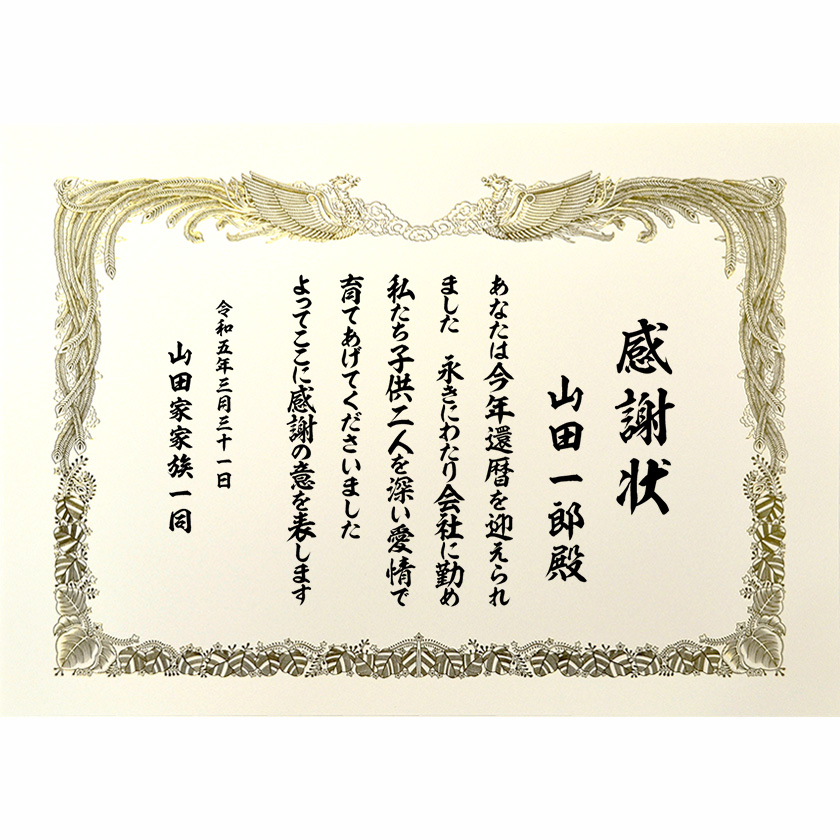 感謝状
山田一郎殿
あなたは今年還暦を迎えられ
ました　永きにわたり会社に勤め
私たち子供二人を深い愛情で
育てあげてくださいました
よってここに感謝の意を表します
令和五年三月三十一日
山田家家族一同